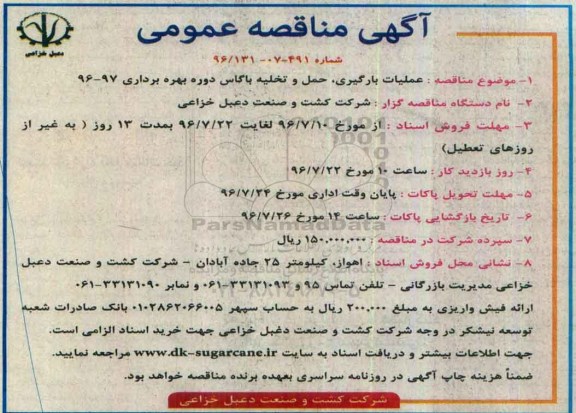 آگهی مناقصه عمومی
دعبل خزاعی
شماره ۴۹۱-۰۷-۹۶/۱۳۱
۱- موضوع مناقصه : عملیات بارگیری، حمل و تخلیه باگاس دوره بهره برداری ۹۷-۹۶
۲- نام دستگاه مناقصه گزار : شرکت کشت و صنعت دعبل خزاعی
۳- مهلت فروش اسناد : از مورخ ۹۶/۷/۱۰ لغایت ۹۶/۷/۲۲ بمدت ۱۳ روز ( به غیر از
روزهای تعطیل)
۴- روز بازدید کار : ساعت ۱۰ مورخ ۹۶/۷/۲۲
۵- مهلت تحویل پاکات : پایان وقت اداری مورخ ۹۶/۷/۲۴
۶- تاریخ بازگشایی پاکات : ساعت ۱۴ مورخ ۹۶/۷/۲۶
ParsNamadData
۷- سپرده شرکت در مناقصه : ۱۵۰,۰۰۰,۰۰۰ ریال
۸- نشانی محل فروش اسناد : اهواز، کیلومتر ۲۵ جاده آبادان - شرکت کشت و صنعت دعبل
خزاعی مدیریت بازرگانی - تلفن تماس ۹۵ و ۳۳۱۳۱۰۹۳-۰۶۱ و نمابر ۳۳۱۳۱۰۹۰-۰۶۱
ارائه فیش واریزی به مبلغ ۲۰۰,۰۰۰ ریال به حساب سپهر ۰۱۰۲۸۶۲۰۶۶۰۰۵ بانک صادرات شعبه
توسعه نیشکر در وجه شرکت کشت و صنعت دغبل خزاعی جهت خرید اسناد الزامی است.
جهت اطلاعات بیشتر و دریافت اسناد به سایت www.dk-sugarcane.ir مراجعه نمایید.
ضمناً هزینه چاپ آگهی در روزنامه سراسری بعهده برنده مناقصه خواهد بود.
شرکت کشت و صنعت دعبل خزاعی